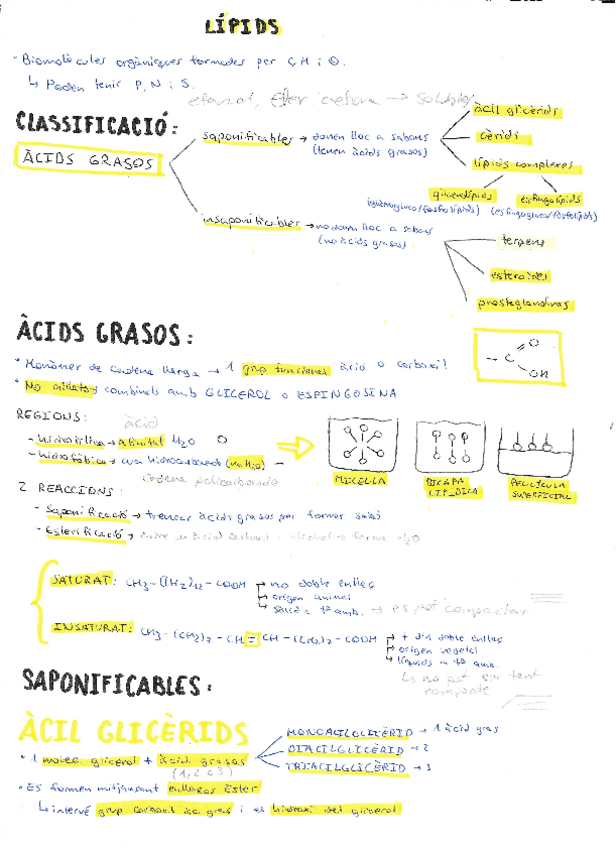 LÍPIDS
· Biomolècules orgàniques formades per C, H i O.
↳ Poden tenir P, N i S.
etanol, èter → soluble
CLASSIFICACIÓ:
ÀCIDS GRASOS
saponificables → donen lloc a sabons
(tenen àcids grasos)
àcil glicèrids
cèrids
lípids complexes
glicerolípids
esfingolípids
insaponificables → no donen lloc a sabons
(no àcids grasos)
terpens
esteroides
prostaglandines
ÀCIDS GRASOS:
· Monòmer de cadena llarga → 1 grup funcional àcid o carboxil
· No aïllats, combinats amb GLICEROL o ESPINGOSINA
- C = O
OH
REGIONS: àcid
- hidrofílica → afinitat H2O O
- hidrofòbica → cua hidrocarbonada (no H2O) -
cadena policarbonada
MICELLA
BICAPA LIPÍDICA
PEL·LÍCULA SUPERFICIAL
2 REACCIONS:
- Saponificació → trencar àcids grasos per formar sabó
- Esterificació → unir un àcid carboxil i alcohol → forma H2O
SATURAT: CH3-(CH2)12-COOH → no doble enllaç
→ origen animal
→ sòlid a tª amb. → es pot compactar
INSATURAT: CH3-(CH2)7-CH=CH-(CH2)7-COOH → + d'un doble enllaç
→ origen vegetal
→ líquids a tª amb.
↳ no pot ser tant
compacte
SAPONIFICABLES:
ÀCIL GLICÈRIDS
· 1 molec glicerol + àcid grasos
(1, 2 o 3)
MONOACILGLICÈRID → 1 àcid gras
DIACILGLICÈRID → 2
TRIACILGLICÈRID → 3
· Es formen mitjançant enllaços Èster
↳ intervé grup carboxil àc gras i el hidroxil del glicerol